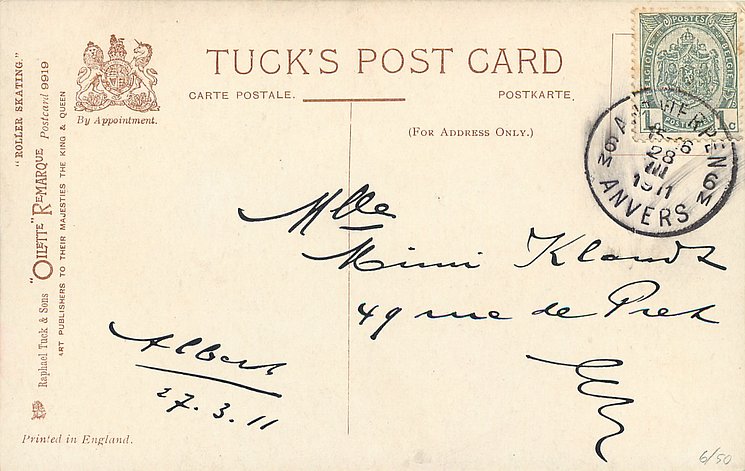 "ROLLER SKATING."
Raphael Tuck & Sons "OILETTE" REMARQUE Postcard 9919
ART PUBLISHERS TO THEIR MAJESTIES THE KING & QUEEN
By Appointment.
TUCK'S POST CARD
CARTE POSTALE. POSTKARTE.
(FOR ADDRESS ONLY.)
POSTES
1 1 C
ANTWERPEN
6M 6M
28
III
1911
ANVERS
Mlle
Mimi
49 rue de Pret
Albert
27.3.11
Printed in England.
6/50